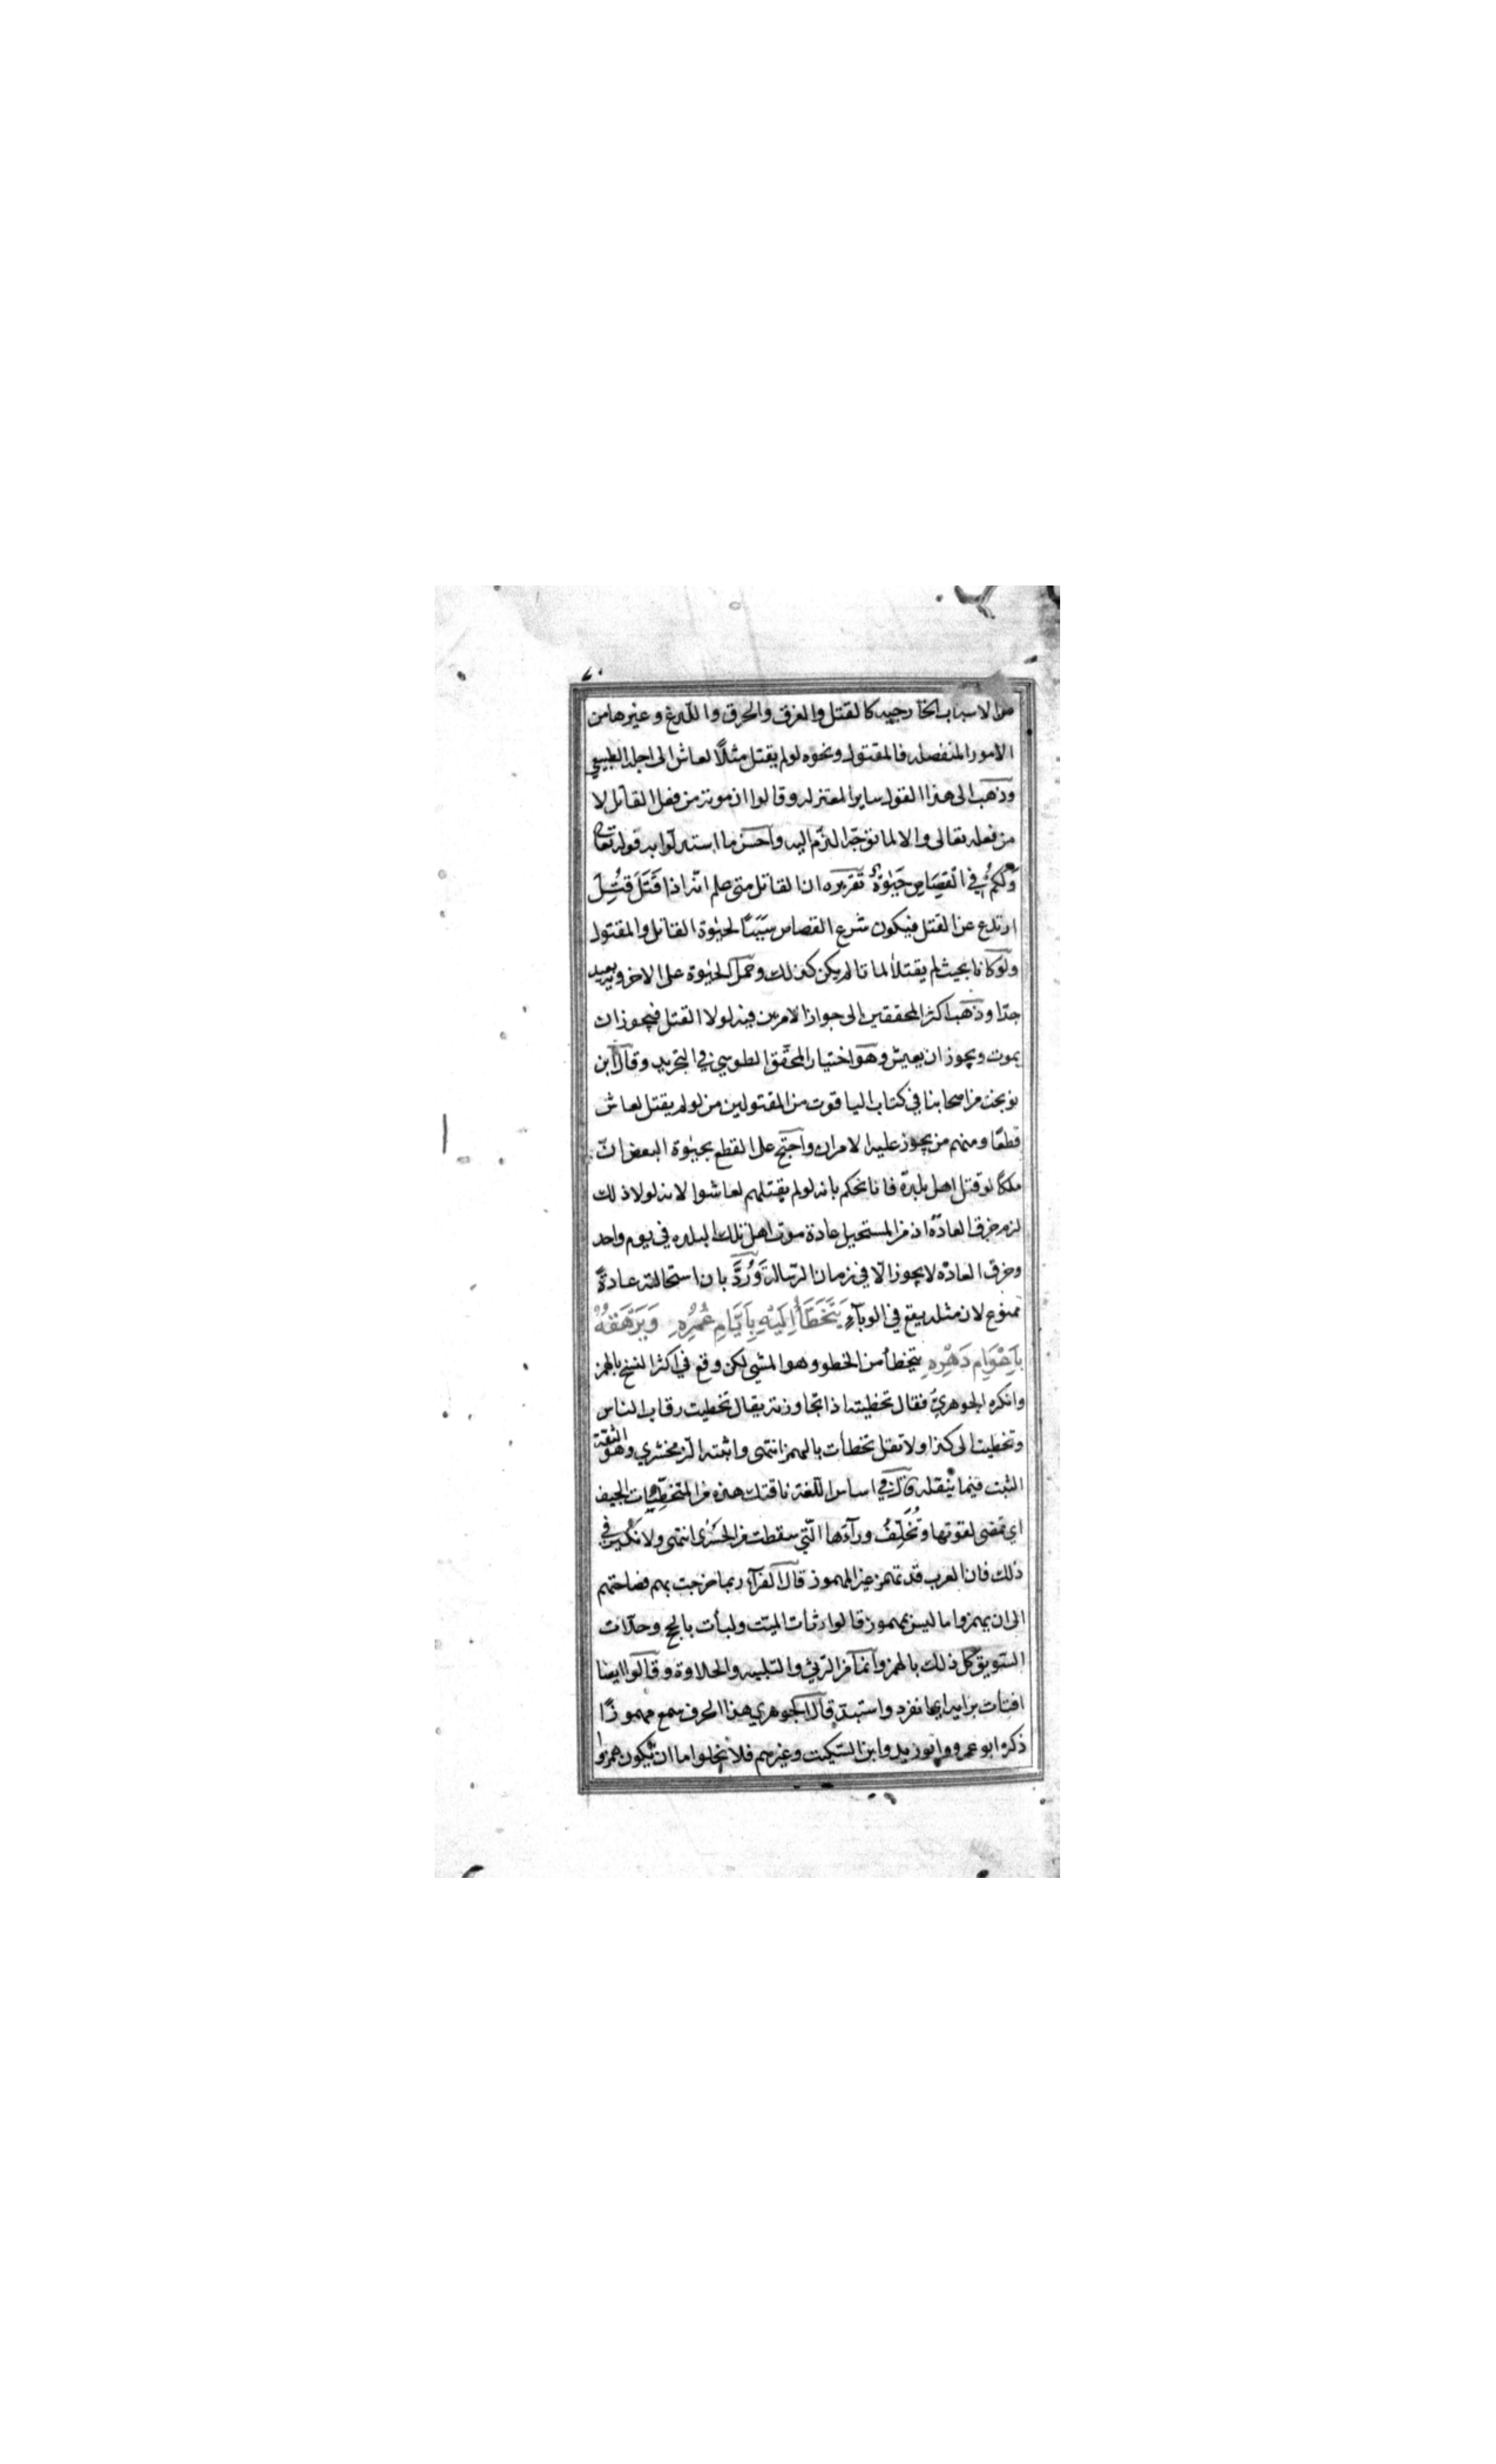 من الاسباب الخارجيه كالقتل والغرق والحرق واللدغ وغيرها من
الامور المنفصله فالمقتول ونحوه لو لم يقتل مثلًا لعاش الى اجله الطبيعي
وذهب الى هذا القول ساير المعتزله وقالوا ان موته من فعل القاتل لا
من فعله تعالى والا لما توجّه الذّم اليه واحسن ما استدلّوا به قوله تعالى
وَلَكُمْ في القِصَاصِ حَيٰوةٌ تقريره ان القاتل متى علم انّه اذا قَتَلَ قُتِلَ
ارتدع عن القتل فيكون شرع القصاص سَبَبًا لحيٰوة القاتل والمقتول
ولو كانا بحيث لم يقتلا لماتا لم يكن كذلك وحمل الحيٰوة على الاخرويه بعيد
جدّا وذهب اكثر المحققين الى جواز الامرين فيه لولا القتل فيجوز ان
يموت ويجوز ان يعيش وهو اختيار المحقّق الطوسي في التجريد وقال ابن
نوبخت من اصحابنا في كتاب الياقوت من المقتولين من لو لم يقتل لعاش
قطعًا ومنهم من يجوز عليه الامران واحتج على القطع بحيٰوة البعض انّ
ملكًا لو قتل اهل بلدة فانا نحكم بانه لو لم يقتلهم لعاشوا لانه لولا ذلك
لزم خرق العادة اذ من المستحيل عادة موت اهل تلك البلده في يوم واحد
وخرق العادة لا يجوز الّا في زمان الرسالة وَرُدَّ بان استحالته عادةً
ممنوع لان مثله يقع في الوبآء يَتَخَطَّأُ اِلَيْهِ بِاَيَّامِ عُمُرِهِ وَيَرْهَقُهُ
بِاَعْوَامِ دَهْرِهِ يتخطأ من الخطو وهو المشي لكن وقع في اكثر النسخ بالهمز
وانكره الجوهريّ فقال تخطيته اذا تجاوزته يقال تخطيت رقاب الناس
وتخطيت الى كذا ولا تقل تخطأت بالهمز انتهى واثبته الزمخشري وهو الثقة
الثبت فيما ينقله قال في اساس اللّغة ناقتك هذه من المتخطّئات الجيف
اي تمضى لقوتها وتُخَلِّفُ ورآءها الّتي سقطت من الحَسْرٰى انتهى ولا نكير في
ذلك فان العرب قد تهمز غير المهموز قال الفرآء ربما خرجت بهم فصاحتهم
الى ان يهمزوا ما ليس بمهموز قالوا رثأت الميّت ولبأت بالحج وحلّأت
السّويق كل ذلك بالهمز وانما من الرثي والتلبيه والحلاوة وقالوا ايضا
افتات برايه ايها نفرد واستبدّ قال الجوهري هذا الحرف سمع مهموزًا
ذكره ابو عمرو وابو زيد وابن السّكيت وغيرهم فلا يخلوا ما ان يكون همزوا